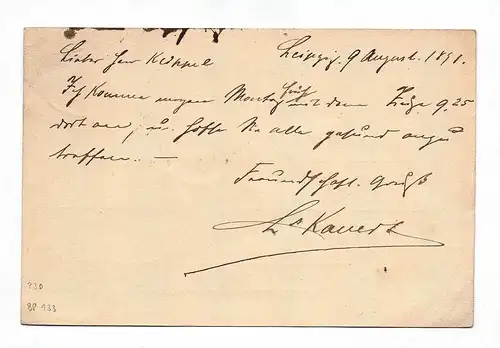 Leipzig, 9 August. 1891.
Lieber Herr Klöppel
Ich komme morgen Montag früh mit dem Zuge 9.25
dort an, u. hoffe Sie alle gesund anzu
treffen. —
Freundschaftl. Gruß
Kauert
P30
BP 133